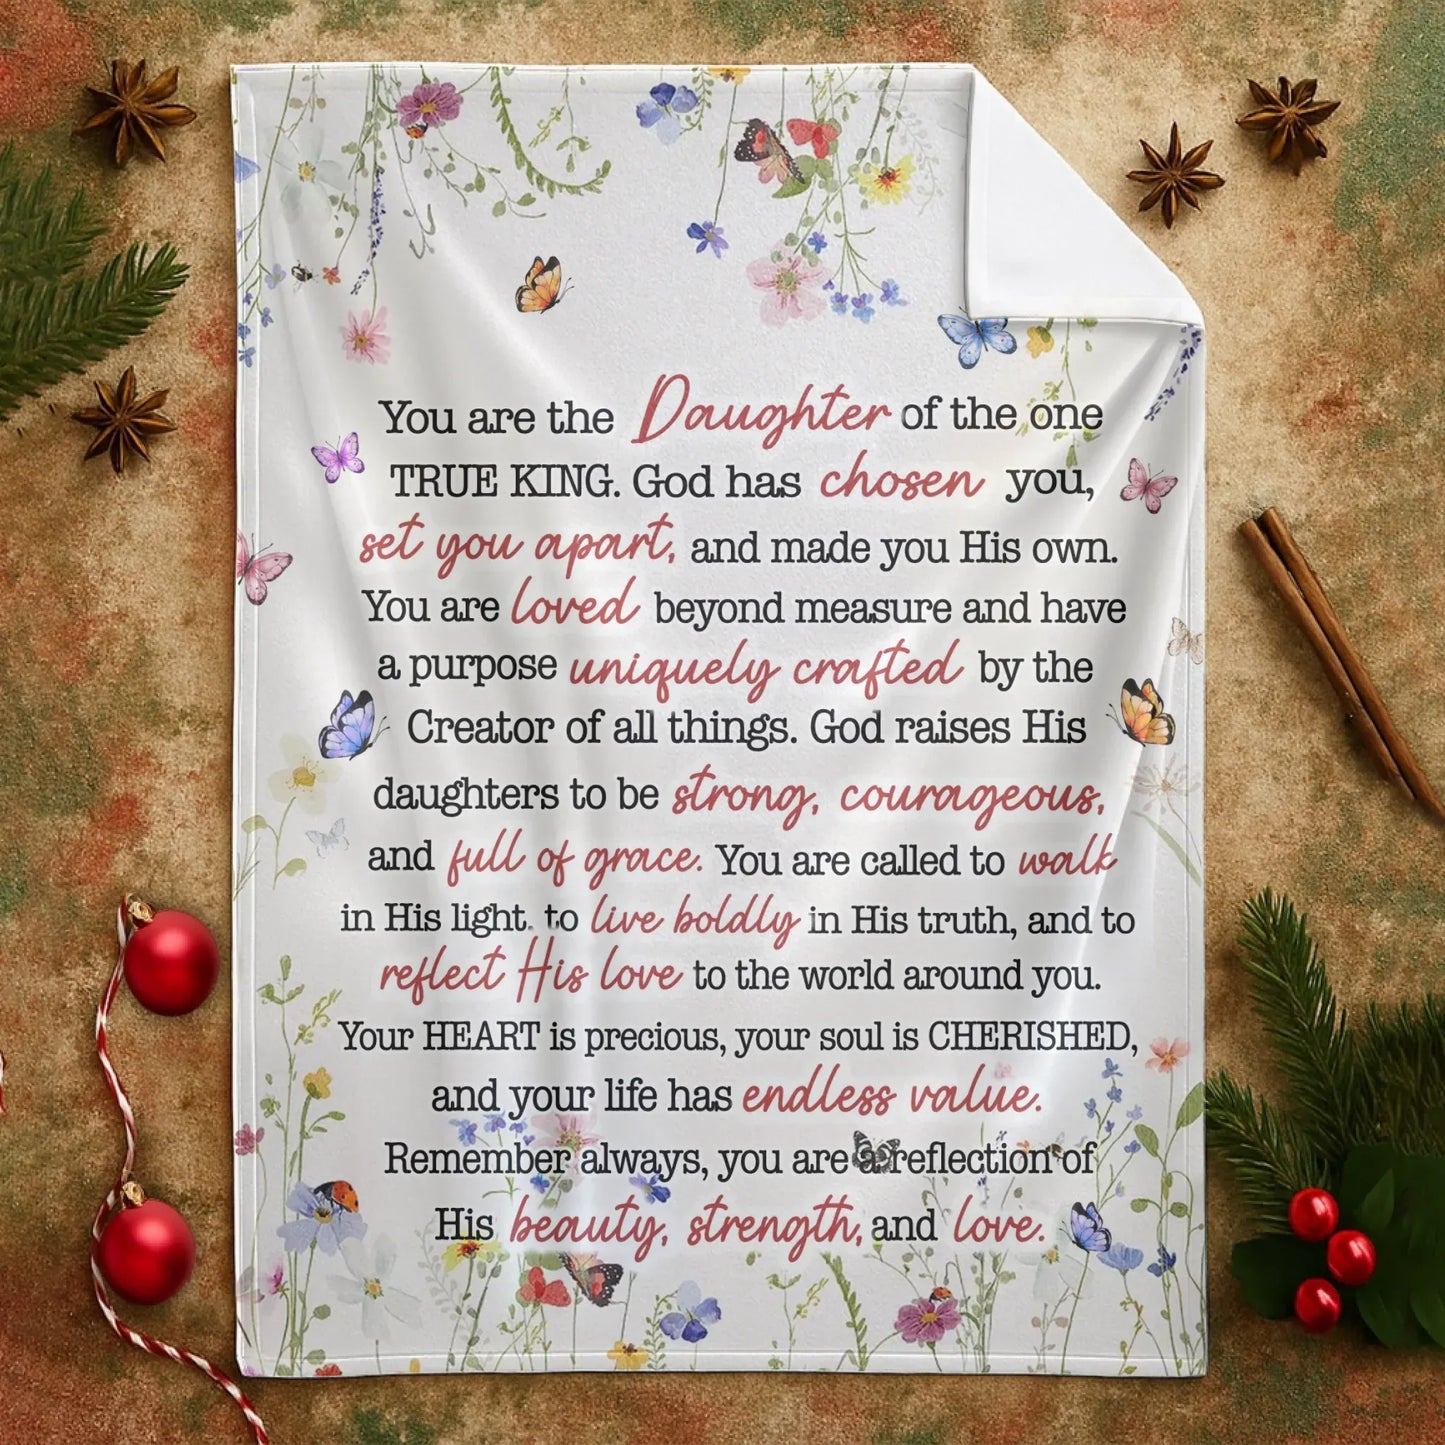 You are the Daughter of the one
TRUE KING. God has chosen you,
set you apart, and made you His own.
You are loved beyond measure and have
a purpose uniquely crafted by the
Creator of all things. God raises His
daughters to be strong, courageous,
and full of grace. You are called to walk
in His light. to live boldly in His truth, and to
reflect His love to the world around you.
Your HEART is precious, your soul is CHERISHED,
and your life has endless value.
Remember always, you are a reflection of
His beauty, strength, and love.